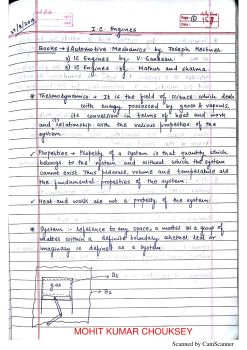 I C Engines
Books → 1) Automotive Mechanics by Joseph Heitner
2) IC Engines by V. Ganesan
3) IC Engines of Mathur and Sharma
* Thermodynamics → It is the field of science which deals
with energy possessed by gases & vapours,
its conversion in terms of heat and work
and relationship with the various properties of the
system.
Properties → Property of a system is that quantity which
belongs to the system and without which the system
cannot exist. Thus pressure, volume and temperature are
the fundamental properties of the system.
✓ Heat and work are not a property of the system.
* System :- reference to any space, a model or a group of
matter within a definite boundary whether real or
imaginary is defined as a system
gas
B1
B2
MOHIT KUMAR CHOUKSEY
Scanned by CamScanner